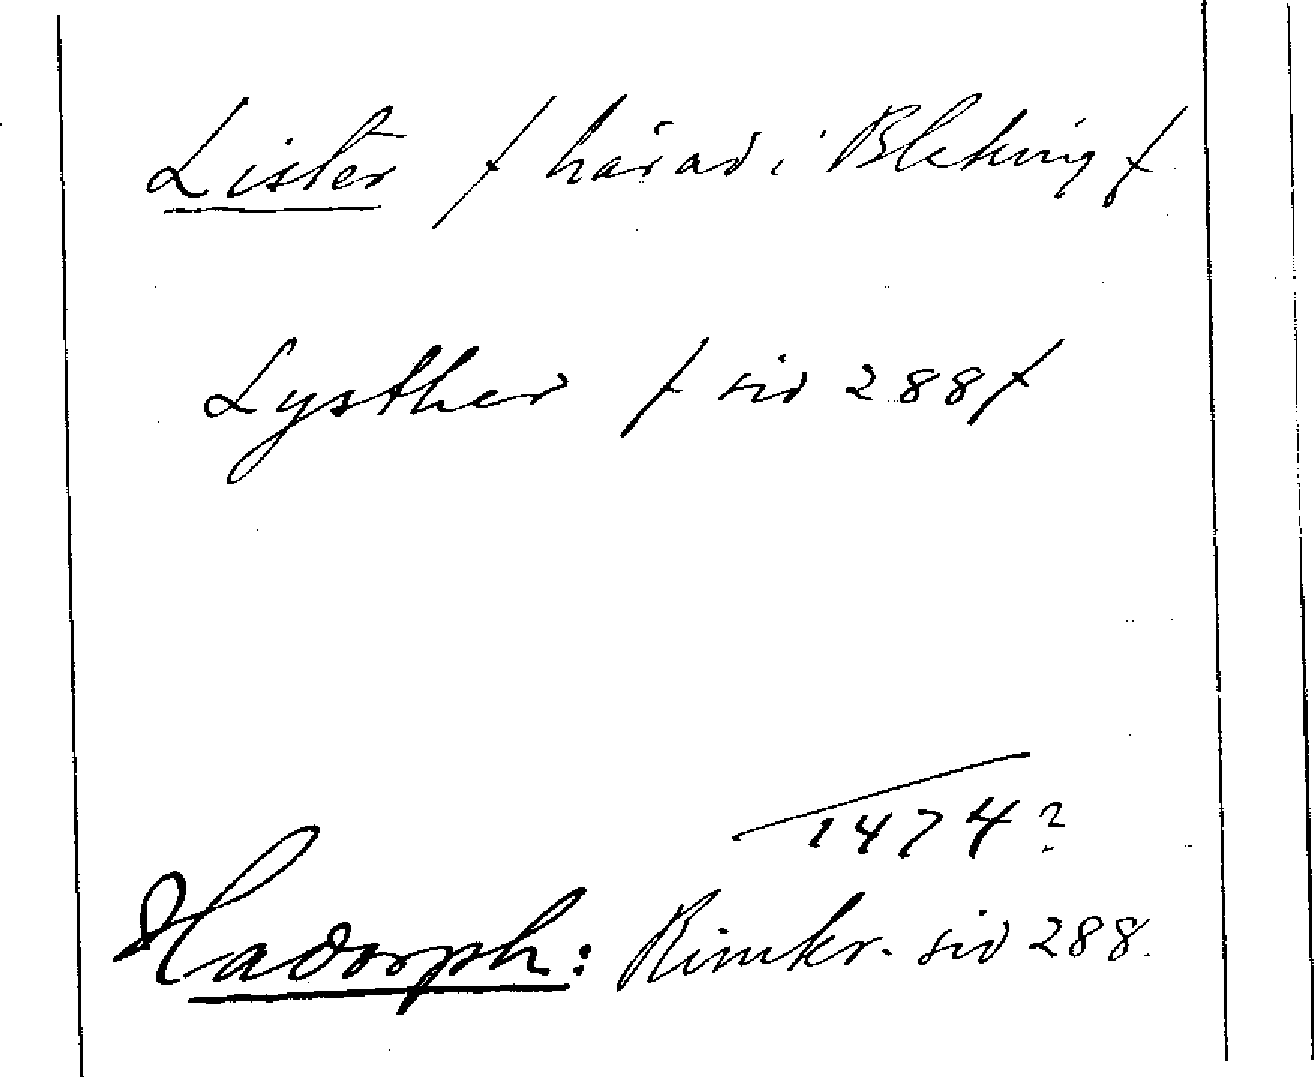 Lister / härad i Bleking /
Lysther / sid 288 /
1474?
Hadorph: Rimkr. sid 288.